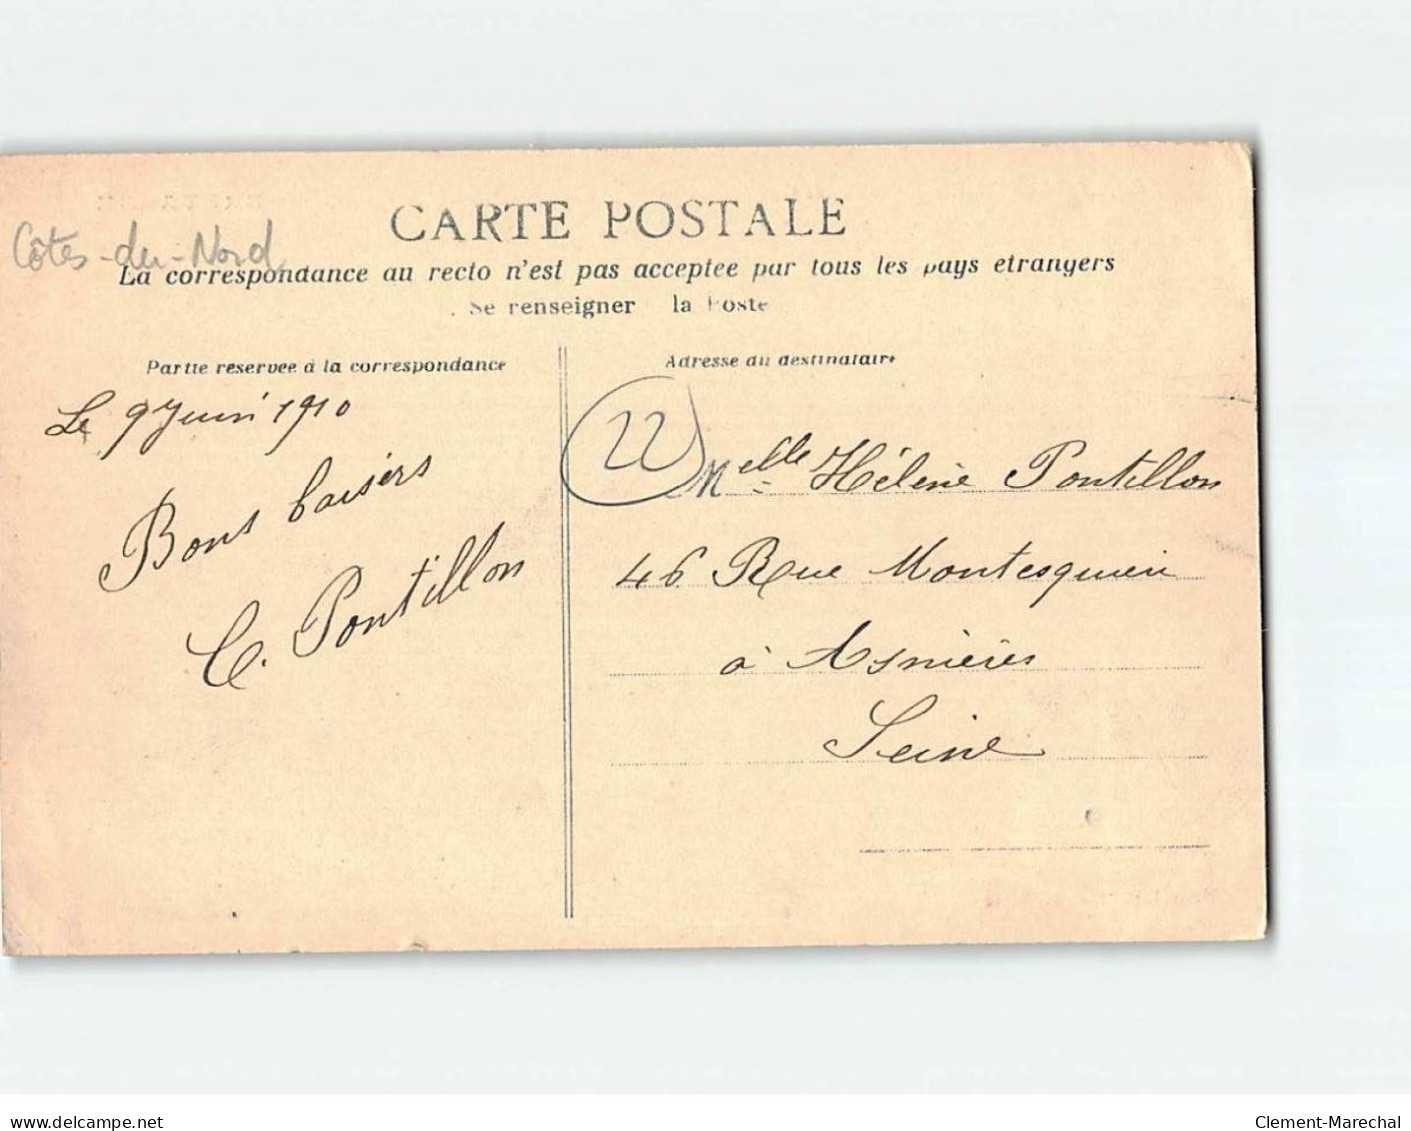 Côtes-du-Nord
CARTE POSTALE
La correspondance au recto n'est pas acceptee par tous les pays etrangers
Se renseigner la Poste
Partie reservee à la correspondance
Le 9 Juin 1910
Bons baisers
C. Pontillon
Adresse du destinataire
22
Melle Hélène Pontillon
46 Rue Montesquieu
à Asnières
Seine
www.delcampe.net
Clement-Marechal